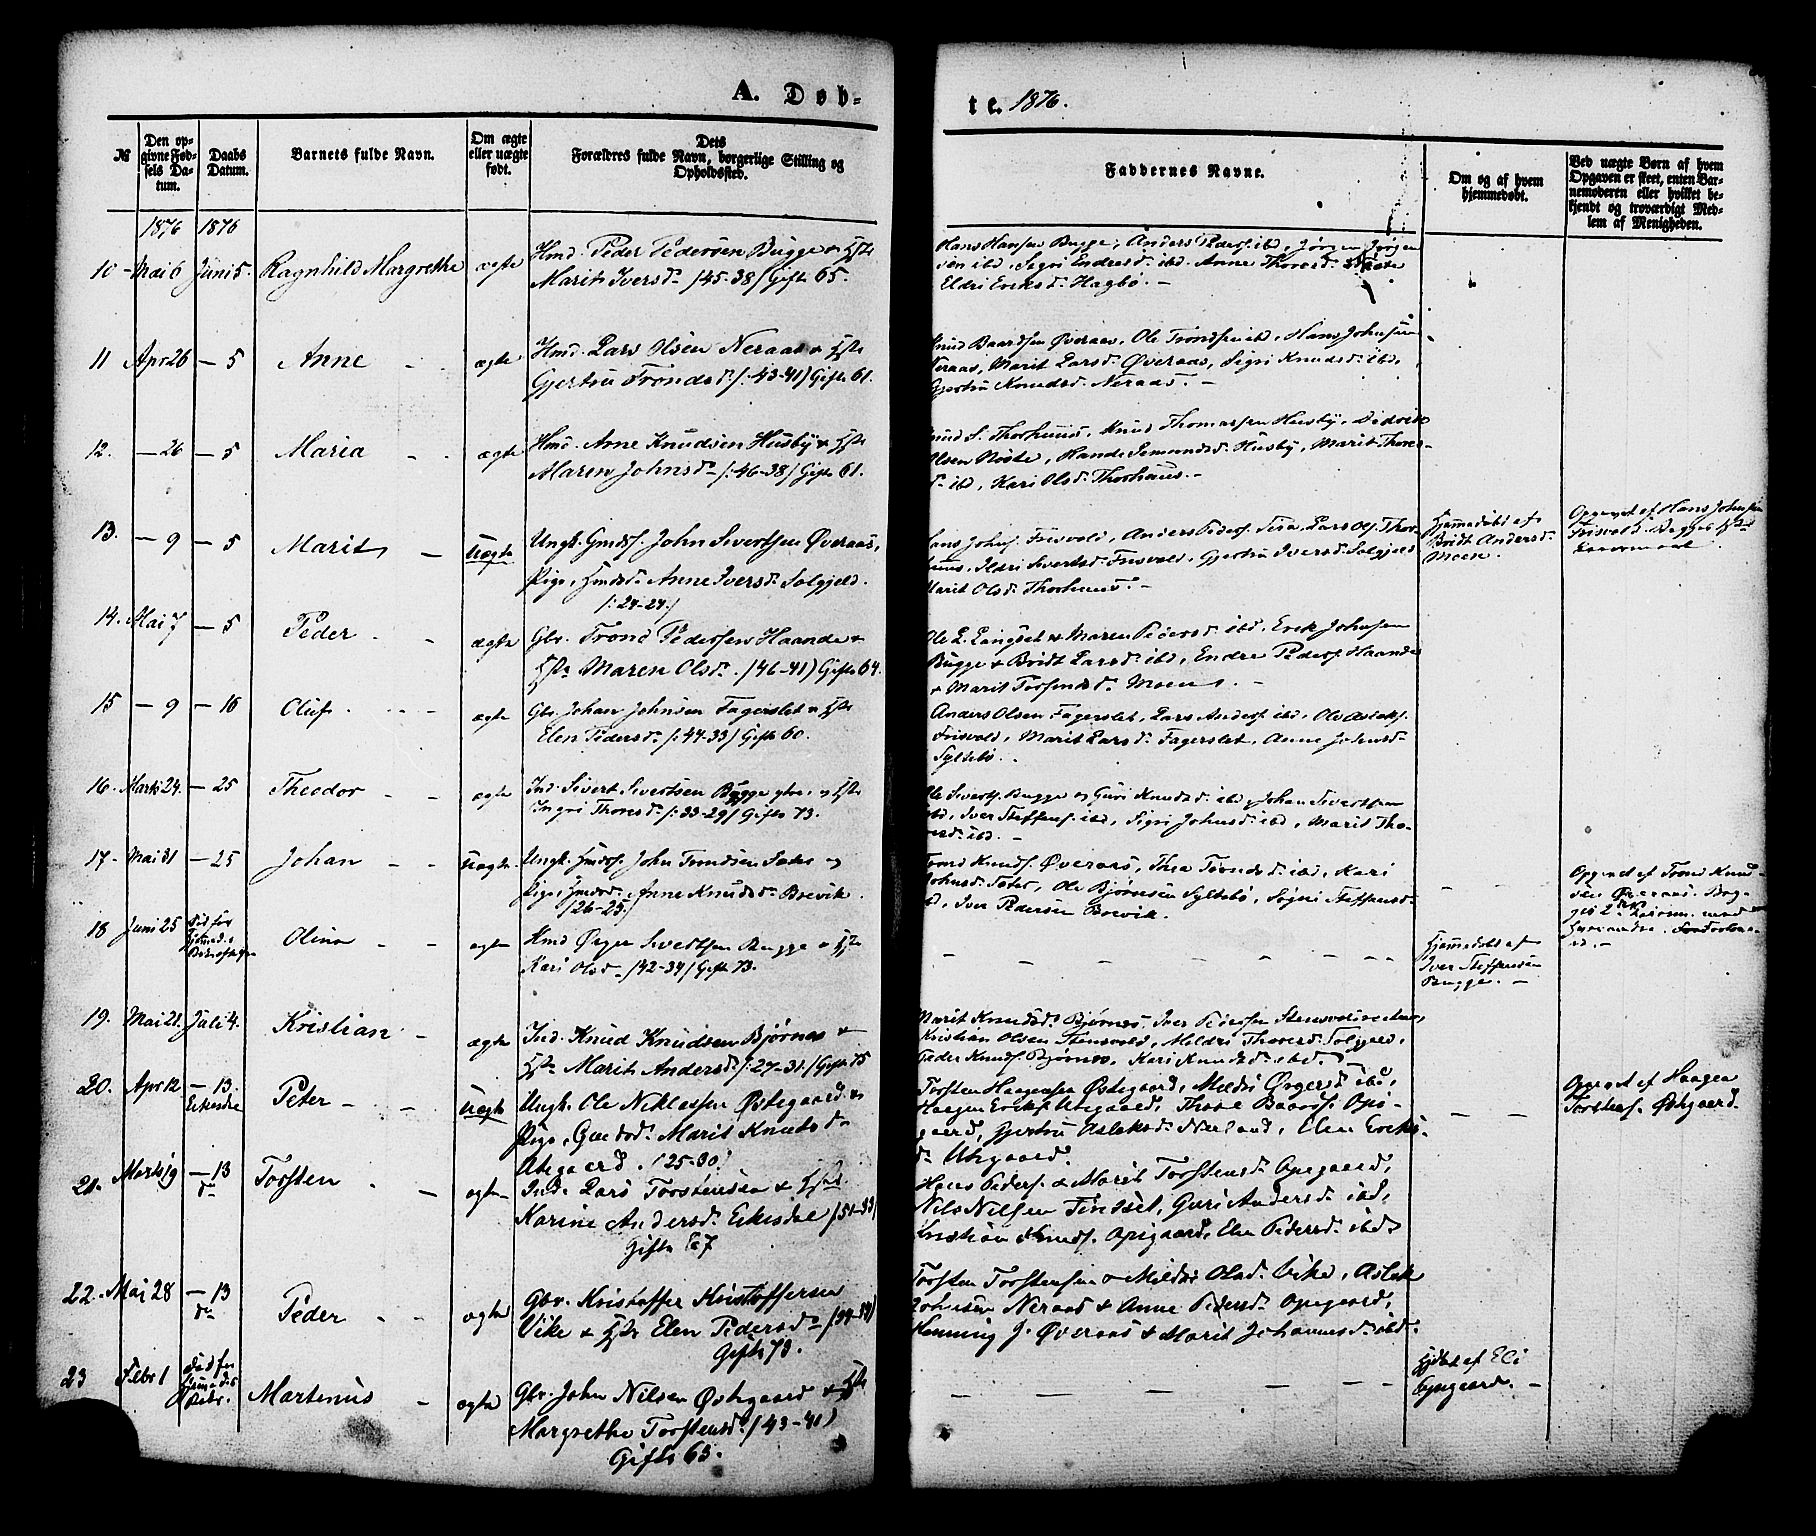 A. Døb-
te. 1876.
№
Den op-
givne Fød-
sels Da-
tum.
Daabs
Datum.
Barnets fulde Navn.
Om ægte
eller uægte
født.
Dets
Forældres fulde Navn, borgerlige Stilling og
Opholdssted.
Faddernes Navne.
Om og af hvem
hjemmedøbt.
Ved uægte Børn af hvem
Opgaven er skeet, enten Bar-
nemoderen eller hvilket be-
kjendt og troværdigt Med-
lem af Menigheden.
1876 1876
10 - Mai 6 Juni 5. Ragnhild Margrethe ægte
Hmd. Peder Pedersen Bugge & Hstr
Marit Iversd. (45-38) Gift 65.
Hans Hansen Bugge, Anders Peders. ibd, Jørgen Jørgen
sen ibd, Sigri Endresd. ibd. Anne Thoresd.
Eldri Eriksd. Hagbø. -
11 Apr 26 - 5 Anne ægte
Hmd. Lars Olsen Neraas & Hstr
Gjertru Trondsd. (: 43-41) Gift 61.
Knud Baardsen Øveraas, Ole Trondsen ibd, Hans Johnsen
Neraas, Marit Larsd. Øveraas, Sigri Knudsd. ibd,
Gjertru Knudsd. Neraas. -
12. - 26 - 5 Maria ægte
Hmd. Arne Knudsen Husby & Hstr
Maren Johnsd. (: 46-38) Gift 61.
Knud S. Thorhuus, Knud Thomassen Husby, Didrik
Olsen Nøste, Husby, Marit Thores-
d. ibd, Kari Olsd. Thorhuus. -
13. - 9 - 5 Marit - uægte
Ungk. Gmds. John Sivertsen Øveraas,
Pige, Hmdsd. Anne Iversd. Solgjeld.
(: 24-24.)
Hans Johns. Frisvold, Anders Peders. Lars Ols. Thor-
huus, Ildri Sivertsd. Frisvold, Gjertru Iversd. Solgjeld
Marit Olsd. Thorhuus. -
Hjemmedøbt af
Brit Andersd.
Moen.
Opgivet af Hans Johnsen
Frisvold. Begges 1ste
Leiermaal.
14. Mai 7 - 5 Peder - ægte
Gbr. Trond Pedersen Haande &
Hstr Maren Olsd. (46-41) Gift 64.
Ole L. Langset & Maren Pedersd. ibd, Erik Johnsen
Bugge & Brit Larsd. ibd, Endre Peders. Haande
& Marit Torfindsd. Moen. -
15 - 9 - 16 Oluf - ægte
Gbr. Johan Johnsen Fagerslet & Hstr
Elen Pedersd. (: 47-33) Gift 60.
Anders Olsen Fagerslet, Lars Anders. ibd, Ole Aslaks.
Frisvold, Marit Larsd. Fagerslet, Anne Johnsd.
Syltebø.
16. Marts 24. - 25 Theodor - - ægte
Ind. Sivert Sivertsen Bugge & Hstr
Ingri Thoresd. (: 33-29) Gift 73.
Ole Siverts. Bugge og Guri Knudsd. ibd, Johan Sivertsen
ibd, Iver Steffens. ibd, Sigri Johnsd. ibd, Marit Tho-
resd. ibd. -
17 - Mai 31 - 25 Johan - - uægte
Ungk. Hmds. John Trondsen Sæter og
Pige, Hmdsd. Anne Knudsd. Brevik.
(26-25.)
Trond Knuds. Øveraas, Thea Trondsd. ibd, Kari
Johnsd. Sæter, Ole Bjørnsen Syltebø, Sigri Steffensd.
ibd, Iver Pedersen Brevik.
- -
Opgivet af Trond Knud-
sen Øveraas. Beg-
ges 2det Leierm. med
hverandre.
18 Juni 25 Død før
Olina - - ægte
Hmd Ørger Sivertsen Bugge & Hstr
Kari Olsd. (42-34) Gift 73.
- - - - - -
Hjemmedøbt af
Iver Steffensen
Bugge. -
19. Mai 21. Juli 4. Kristian - ægte
Ind. Knud Knudsen Bjørnes &
Hstr Marit Andersd. (: 27-31.) Gift 75
Marit Knudsd. Bjørnes, Iver Pedersen
Kristian Olsen Stensvold, Mildri Thoresd. Solgjeld,
Peder Knuds. Bjørnes, Kari Knudsd. ibd. -
20. Apr 12 - 13. Eikesdal Peter - - uægte
Ungk. Ole Niklassen Østegaard &
Pige, Gmdsd. Marit Knutsd.
Utegaard. (25-30)
Torsten Haagensen Østegaard, Mildri Ørgersd. ibd,
Haagen Eriks. Utegaard, Thore Baards. Opi-
gaard, Gjertru Aslaksd. Nerland, Elen Eriks-
d. Utegaard.
- -
Opgivet af Haagen
Torstens. Østigaard.
21. Marts 19 - 13 do Torsten - ægte
Ind. Lars Torstensen & Hstr
Karine Andersd. Eikesdal (51-33)
Gift 67
Hans Peders. & Marit Torstensd. Opegaard,
Nils Nilsen Finset, Guri Andersd. ibd,
Kristian Knuds. Opigaard, Elen Pedersd. ibd.
22. Mai 28 - 13 do Peder - - ægte
Gbr. Kristoffer Kristoffersen
Vike & Hstr Elen Pedersd. (34-34)
Gift 73.
Torsten Torstensen & Mildri Olsd. Vike, Aslak
Johnsen Neraas & Anne Pedersd. Opegaard,
Henning J. Øveraas & Marit Johannesd. ibd.
23 Febr 1 Død før
Martenus - ægte
Gbr. John Nilsen Østigaard & Hstr
Margrethe Torstensd. (43-41)
Gift 63.
- - - - - -
Hjdøbt af Eli
Opegaard. -